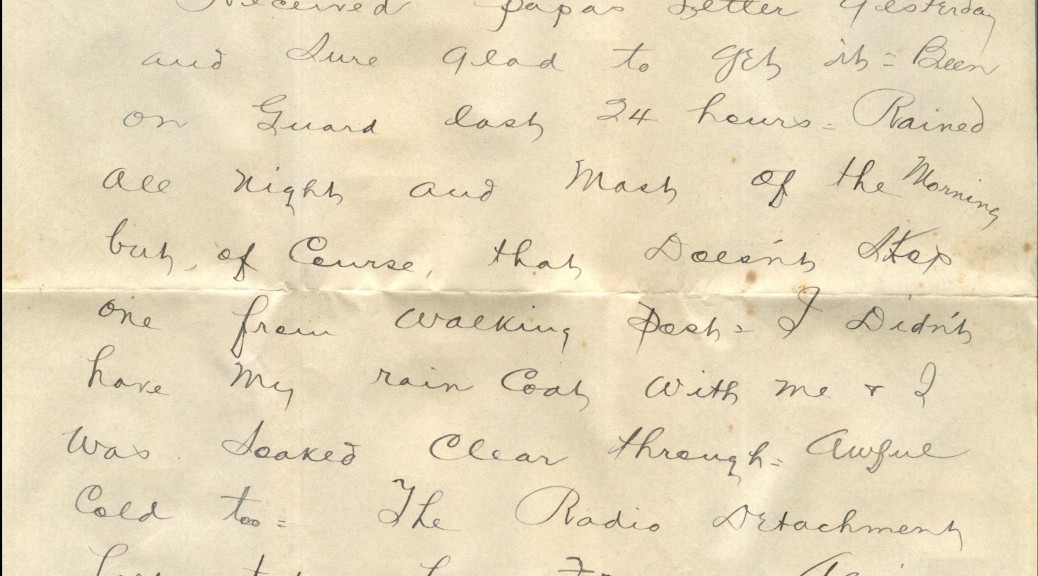 Received papas Letter Yesterday
and Sure Glad to Get it = Been
on Guard last 24 hours = Rained
All Night and Most of the Morning
but, of Course, that Doesn't Stop
one from Walking Post = I Didn't
have My rain Coat With me & I
Was Soaked Clear through = Awful
Cold too = The Radio Detachment